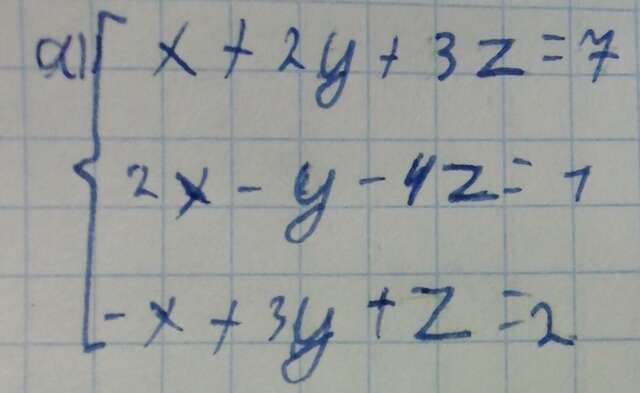 a) x + 2y + 3z = 7
2x - y - 4z = 1
-x + 3y + z = 2